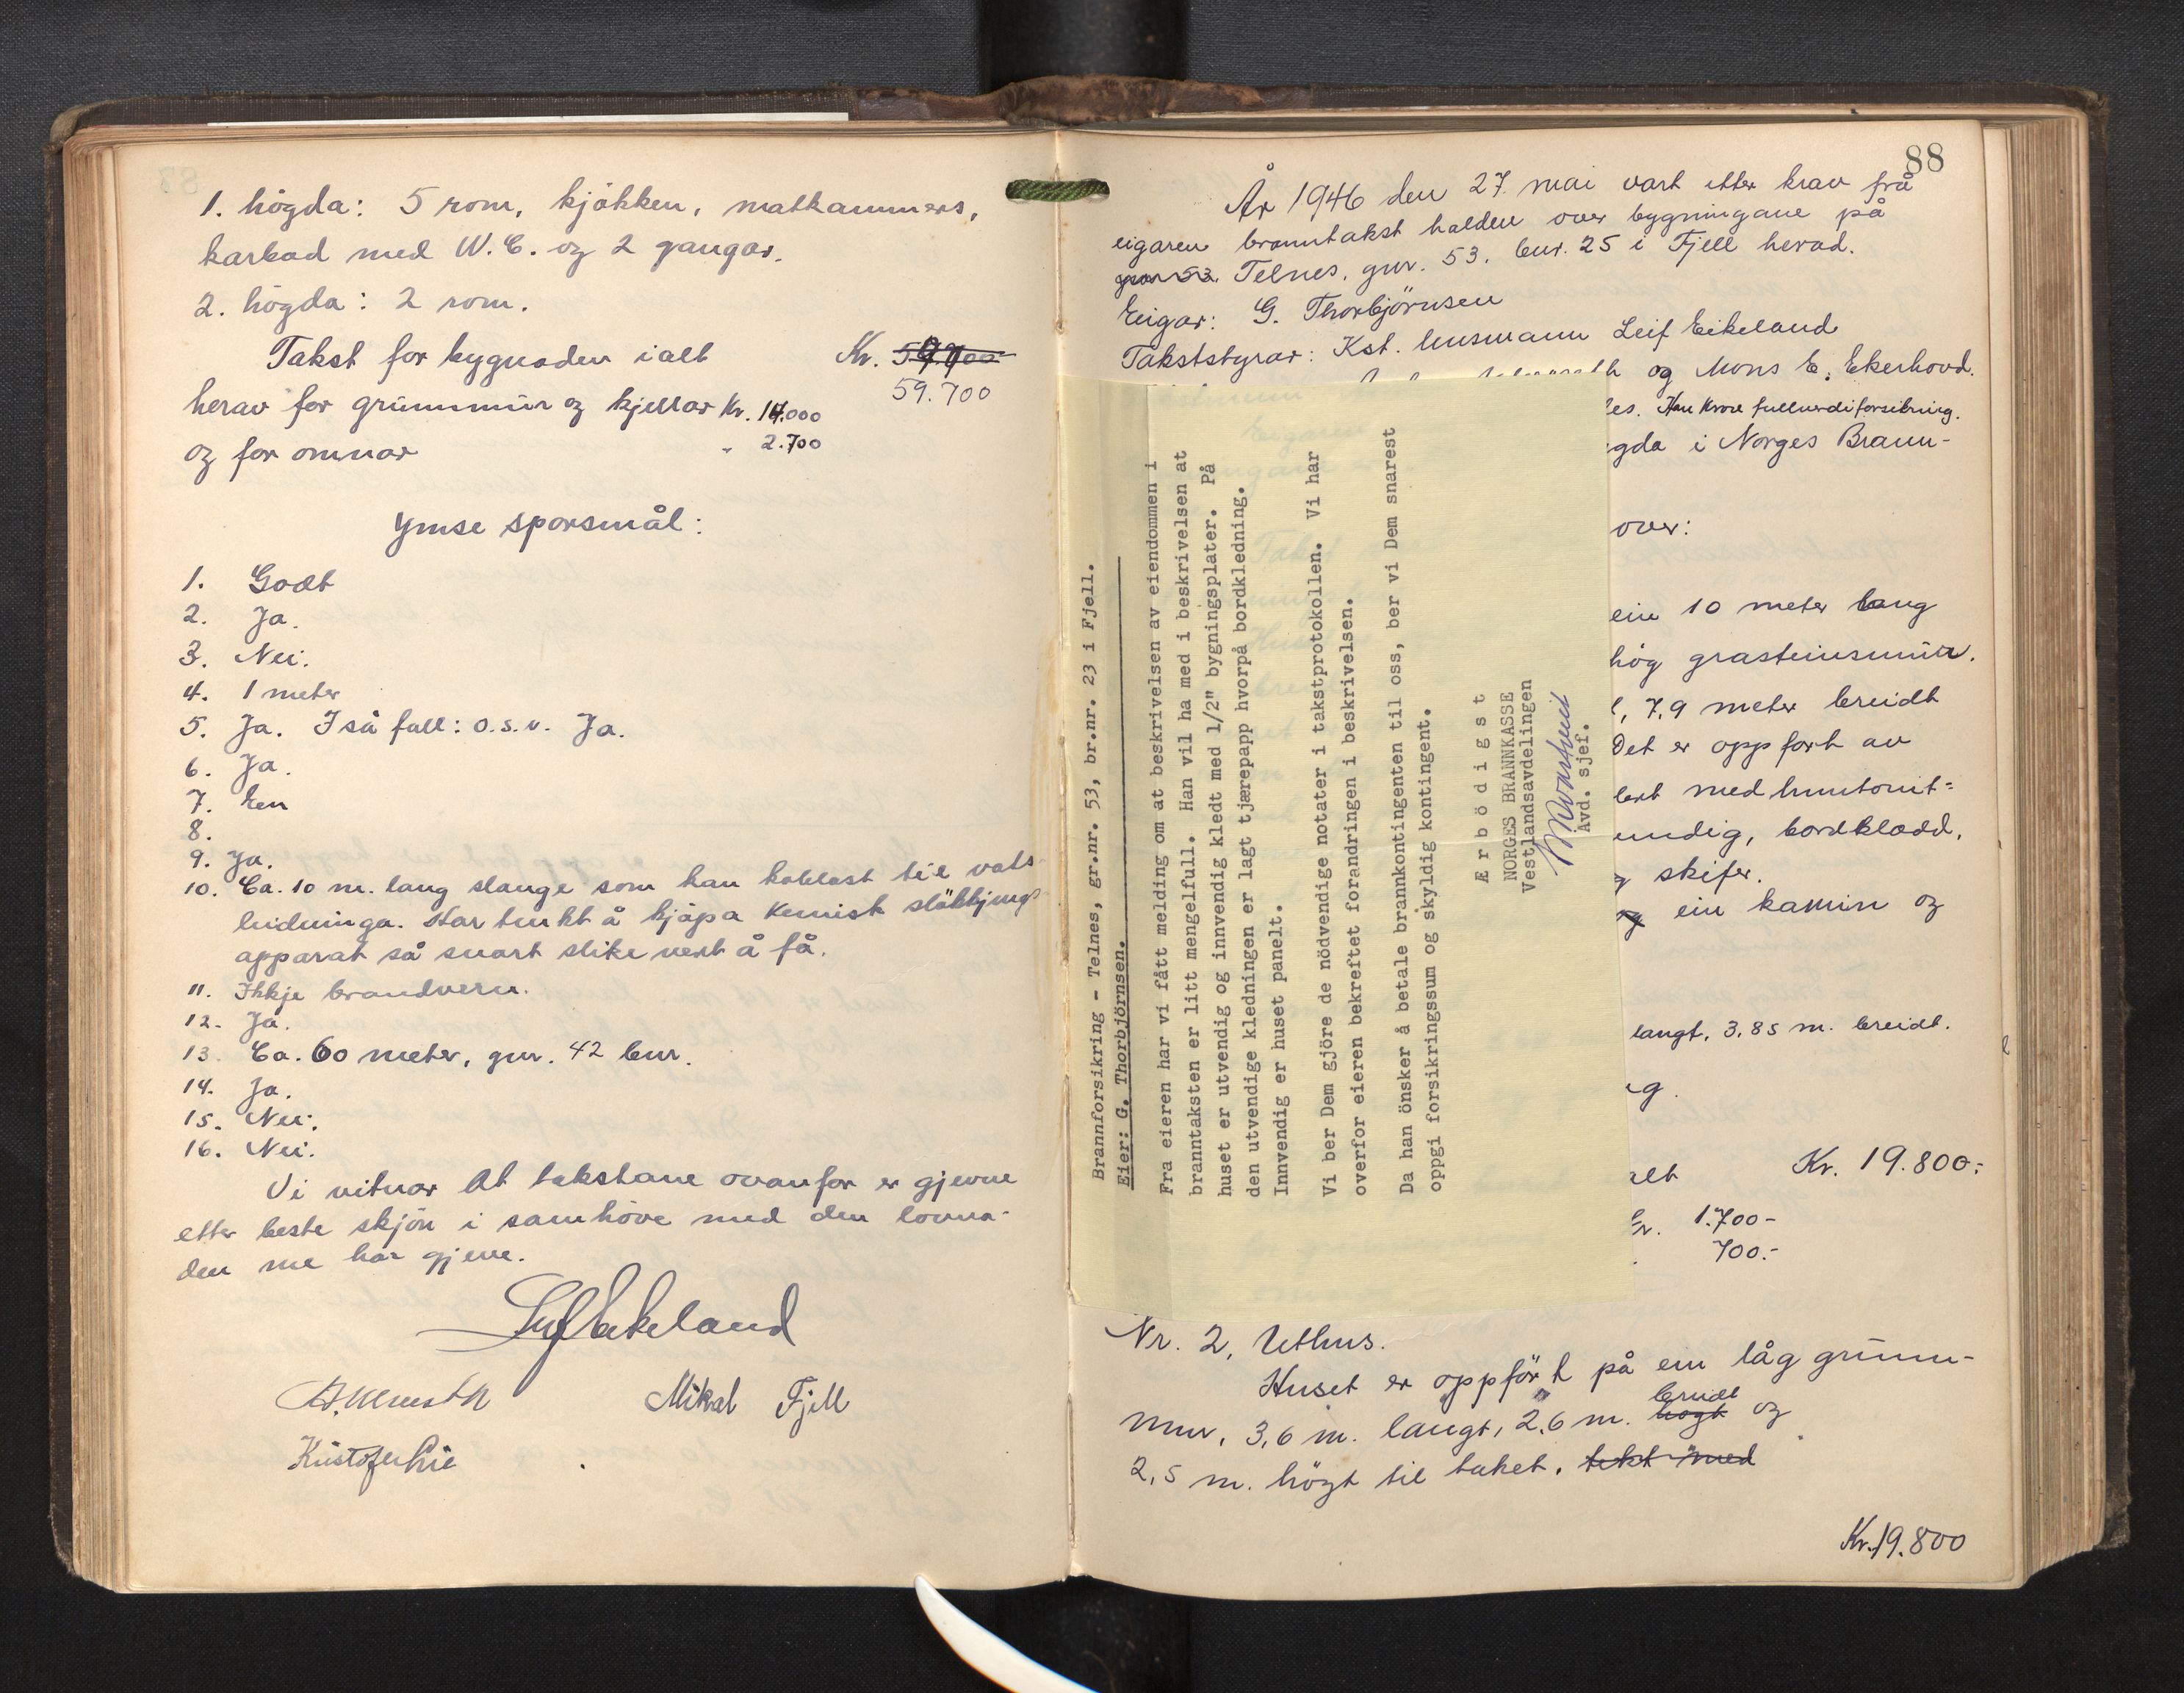 1. högda: 5 rom, kjökken, matkammers,
karbad med W.C. og 2 gangar.
2. högda: 2 rom.
Takst for bygnaden ialt Kr.
59.700
herav for grunnmur og kjellar Kr. 14.000
og for omnar " 2.700
Ymse sporsmål:
1. Godt
2. Ja.
3. Nei.
4. 1 meter
5. Ja. I så fall: o.s.v. Ja.
6. Ja.
7. Ein
8.
9. Ja.
10. Ca. 10 m. lang slange som kan koblast til vats
leidninga. Har tenkt å kjöpa kemisk slökkjings
apparat så snart slike vert å få.
11. Ikkje brandvern.
12. Ja.
13. Ca. 60 meter, gnr. 42 bnr.
14. Ja.
15. Nei.
16. Nei.
Vi vitnar at takstane ovanfor er gjevne
etter beste skjön i samhöve med den lovna-
den me har gjeve.
Leif Eikeland
Mikal Fjell
Kristofer Lie
88
År 1946 den 27. mai vart etter krav frå
eigaren branntakst halden over bygningane på
gnr 53. Telnes, gnr. 53. bnr. 25 i Fjell herad.
Eigar: G. Thorbjörnsen
Takststyrar: Kst. lensmann Leif Eikeland
og Mons E. Ekerhovd.
es. Han krove fullverdiforsikring.
gda i Norges Brann-
over:
ein 10 meter lang
hög grasteinsmur.
, 7,9 meter breidt
Det er oppfört av
med huntonit-
endig, bordkledd,
skifer.
og ein kamin og
langt, 3,85 m. breidt.
g.
alt Kr. 19.800:
Kr. 1.700-
700.-
Brannforsikring - Telnes, gr.nr. 53, br.nr. 23 i Fjell.
Eier: G. Thorbjörnsen.
Fra eieren har vi fått melding om at beskrivelsen av eiendommen i
branntaksten er litt mengelfull. Han vil ha med i beskrivelsen at
huset er utvendig og innvendig kledt med 1/2" bygningsplater. På
den utvendige kledningen er lagt tjærepapp hvorpå bordkledning.
Innvendig er huset panelt.
Vi ber Dem gjöre de nödvendige notater i takstprotokollen. Vi har
overfor eieren bekreftet forandringen i beskrivelsen.
Da han önsker å betale brannkontingenten til oss, ber vi Dem snarest
oppgi forsikringssum og skyldig kontingent.
Ærbödigst
NORGES BRANNKASSE
Vestlandsavdelingen
Avd. sjef.
Nr. 2, Uthus.
Huset er oppfört på ein låg grunn-
mur, 3,6 m. langt, 2,6 m. högt breidt og
2,5 m. högt til taket. tekt med
Kr. 19.800